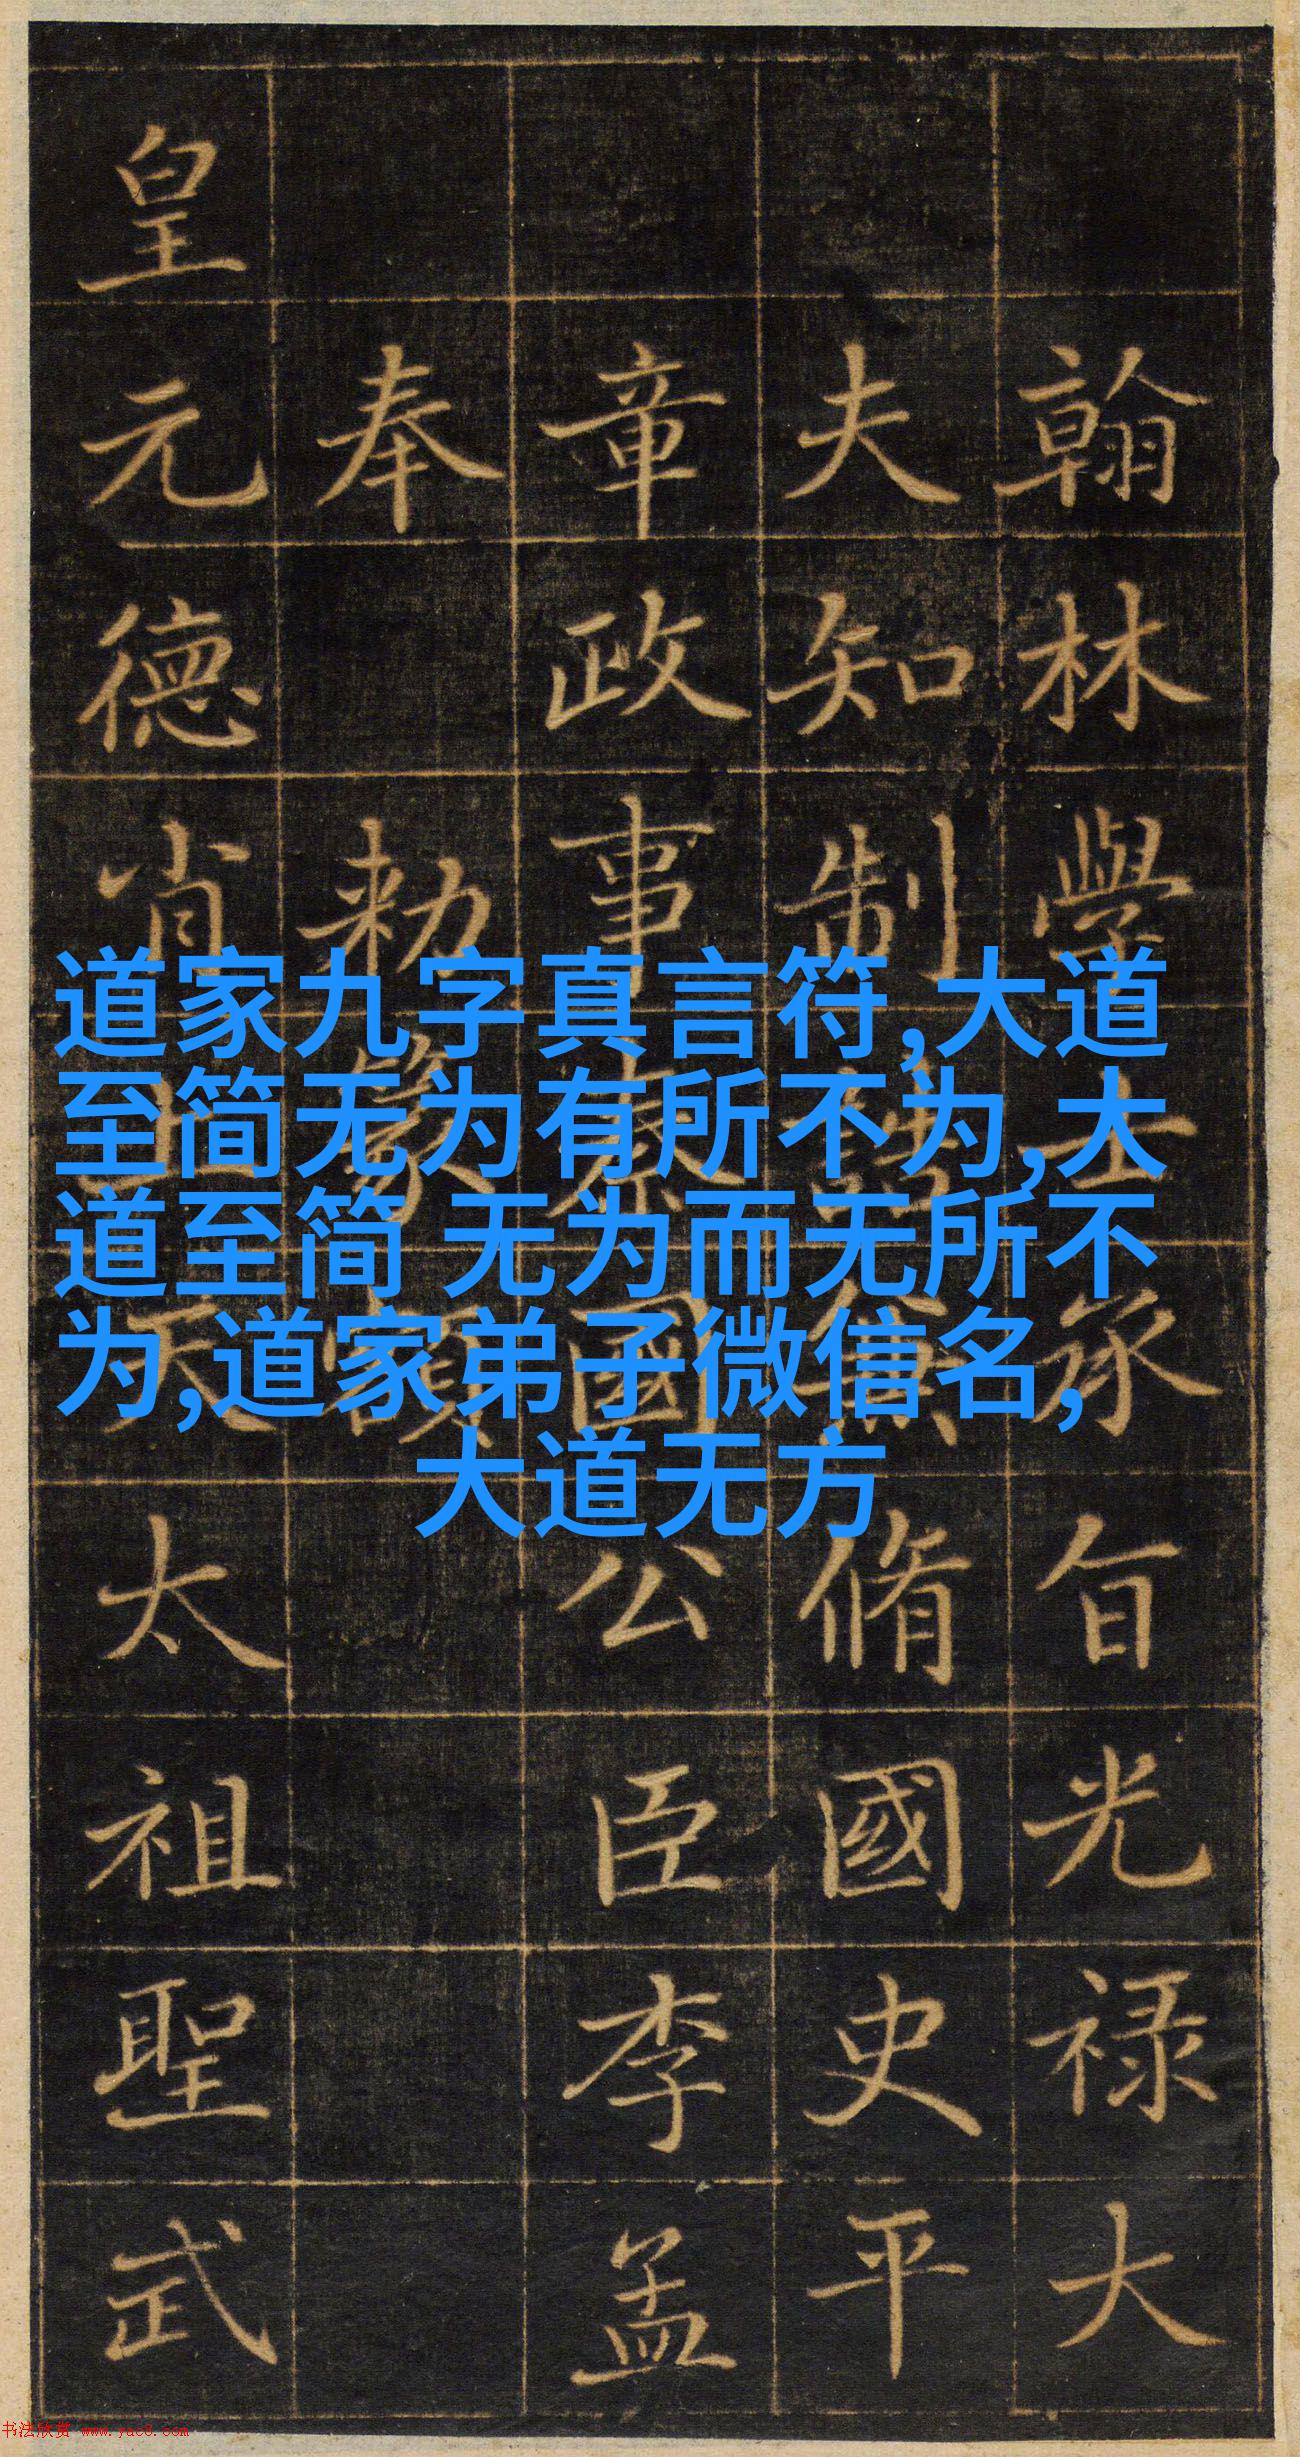 翰林學士承旨光禄大
夫知制誥兼脩國史平
章政事秦國公臣李孟
奉 勑篆額
皇元德肖天太祖聖武
道家九字真言符,大道
至简无为有所不为,大
道至简 无为而无所不
为,道家弟子微信名,
大道无方
书法欣赏 www.yac8.com